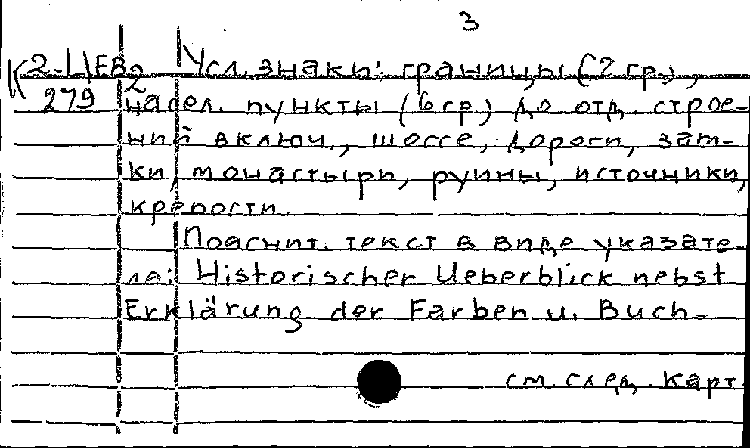 3
К 2-Ц/ЕВ2 Усл. знаки: границы (2 гр.),
279 насел. пункты (6 гр.) до отд. строе-
ний включ., шоссе, дороги, зам-
ки, монастыри, руины, источники,
крепости.
Пояснит. текст в виде указате-
ля: Historischer Ueberblick nebst
Erklärung der Farben u. Buch-
см. след. карт.